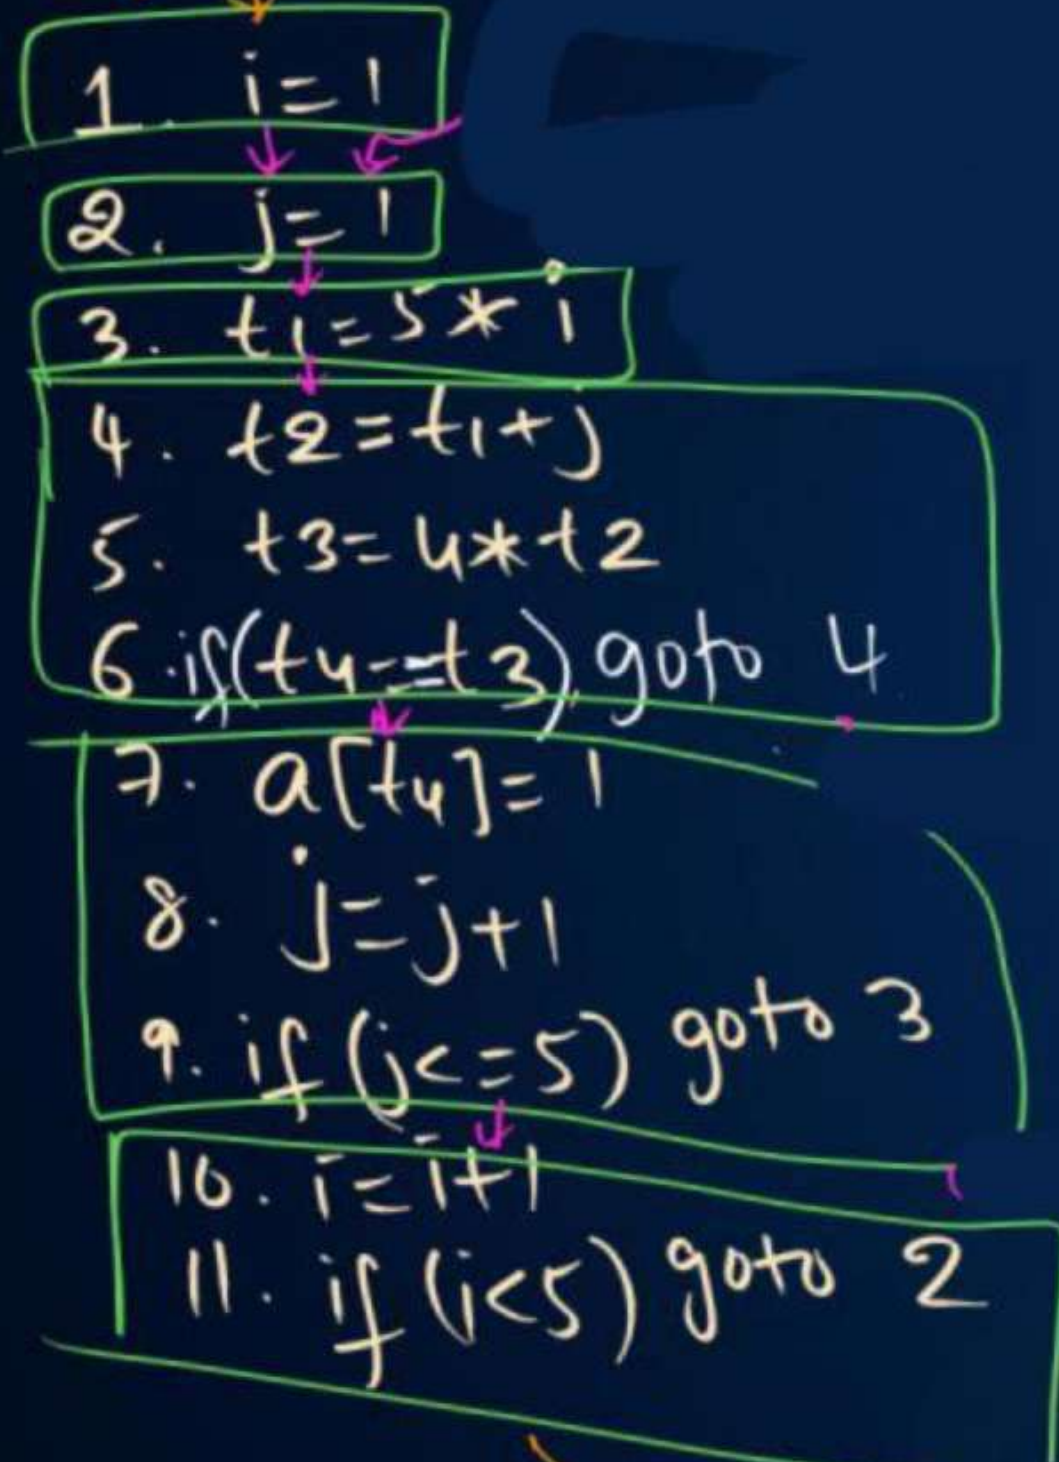 1. i=1
2. j=1
3. t1=5*i
4. t2=t1+j
5. t3=4*t2
6.if(t4==t3) goto 4
7. a[t4]=1
8. j=j+1
9. if (j<=5) goto 3
10. i=i+1
11. if (i<5) goto 2